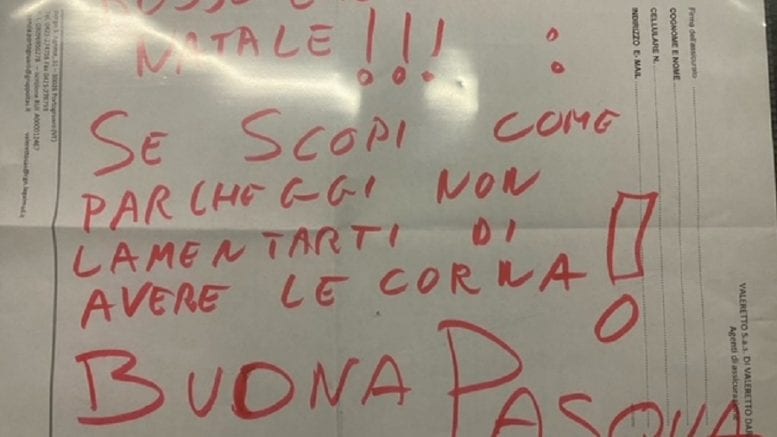 NATALE !!! :
SE SCOPI COME
PARCHEGGI NON
LAMENTARTI DI
AVERE LE CORNA !
BUONA PASQUA
Firma dell'assicurato
COGNOME E NOME
CELLULARE N.
INDIRIZZO E-MAIL
VALERETTO S.a.s. DI VALERETTO DAR
Agenti di assicurazione